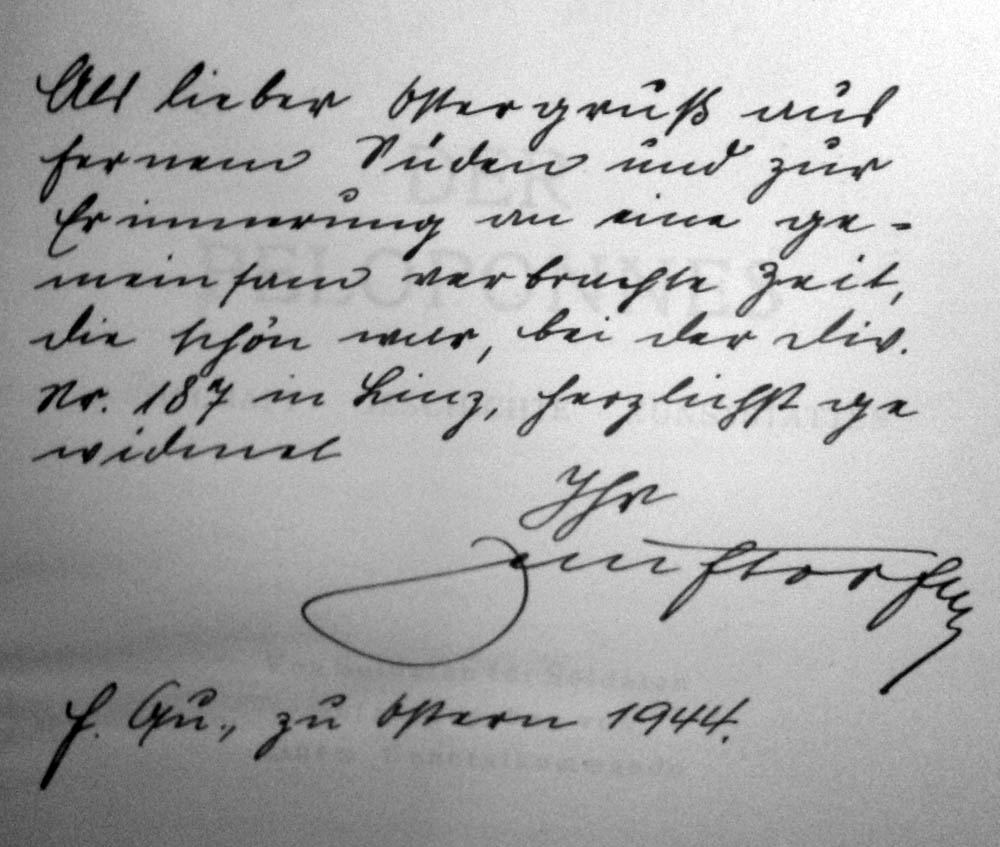 Als lieber Ostergruß aus
fernem Süden und zur
Erinnerung an eine ge-
meinsam verbrachte Zeit,
die schön war, bei der Div.
Nr. 187 in Linz, herzlichst ge
widmet
Ihr
H. Qu., zu Ostern 1944.
DER
PELOPONNES